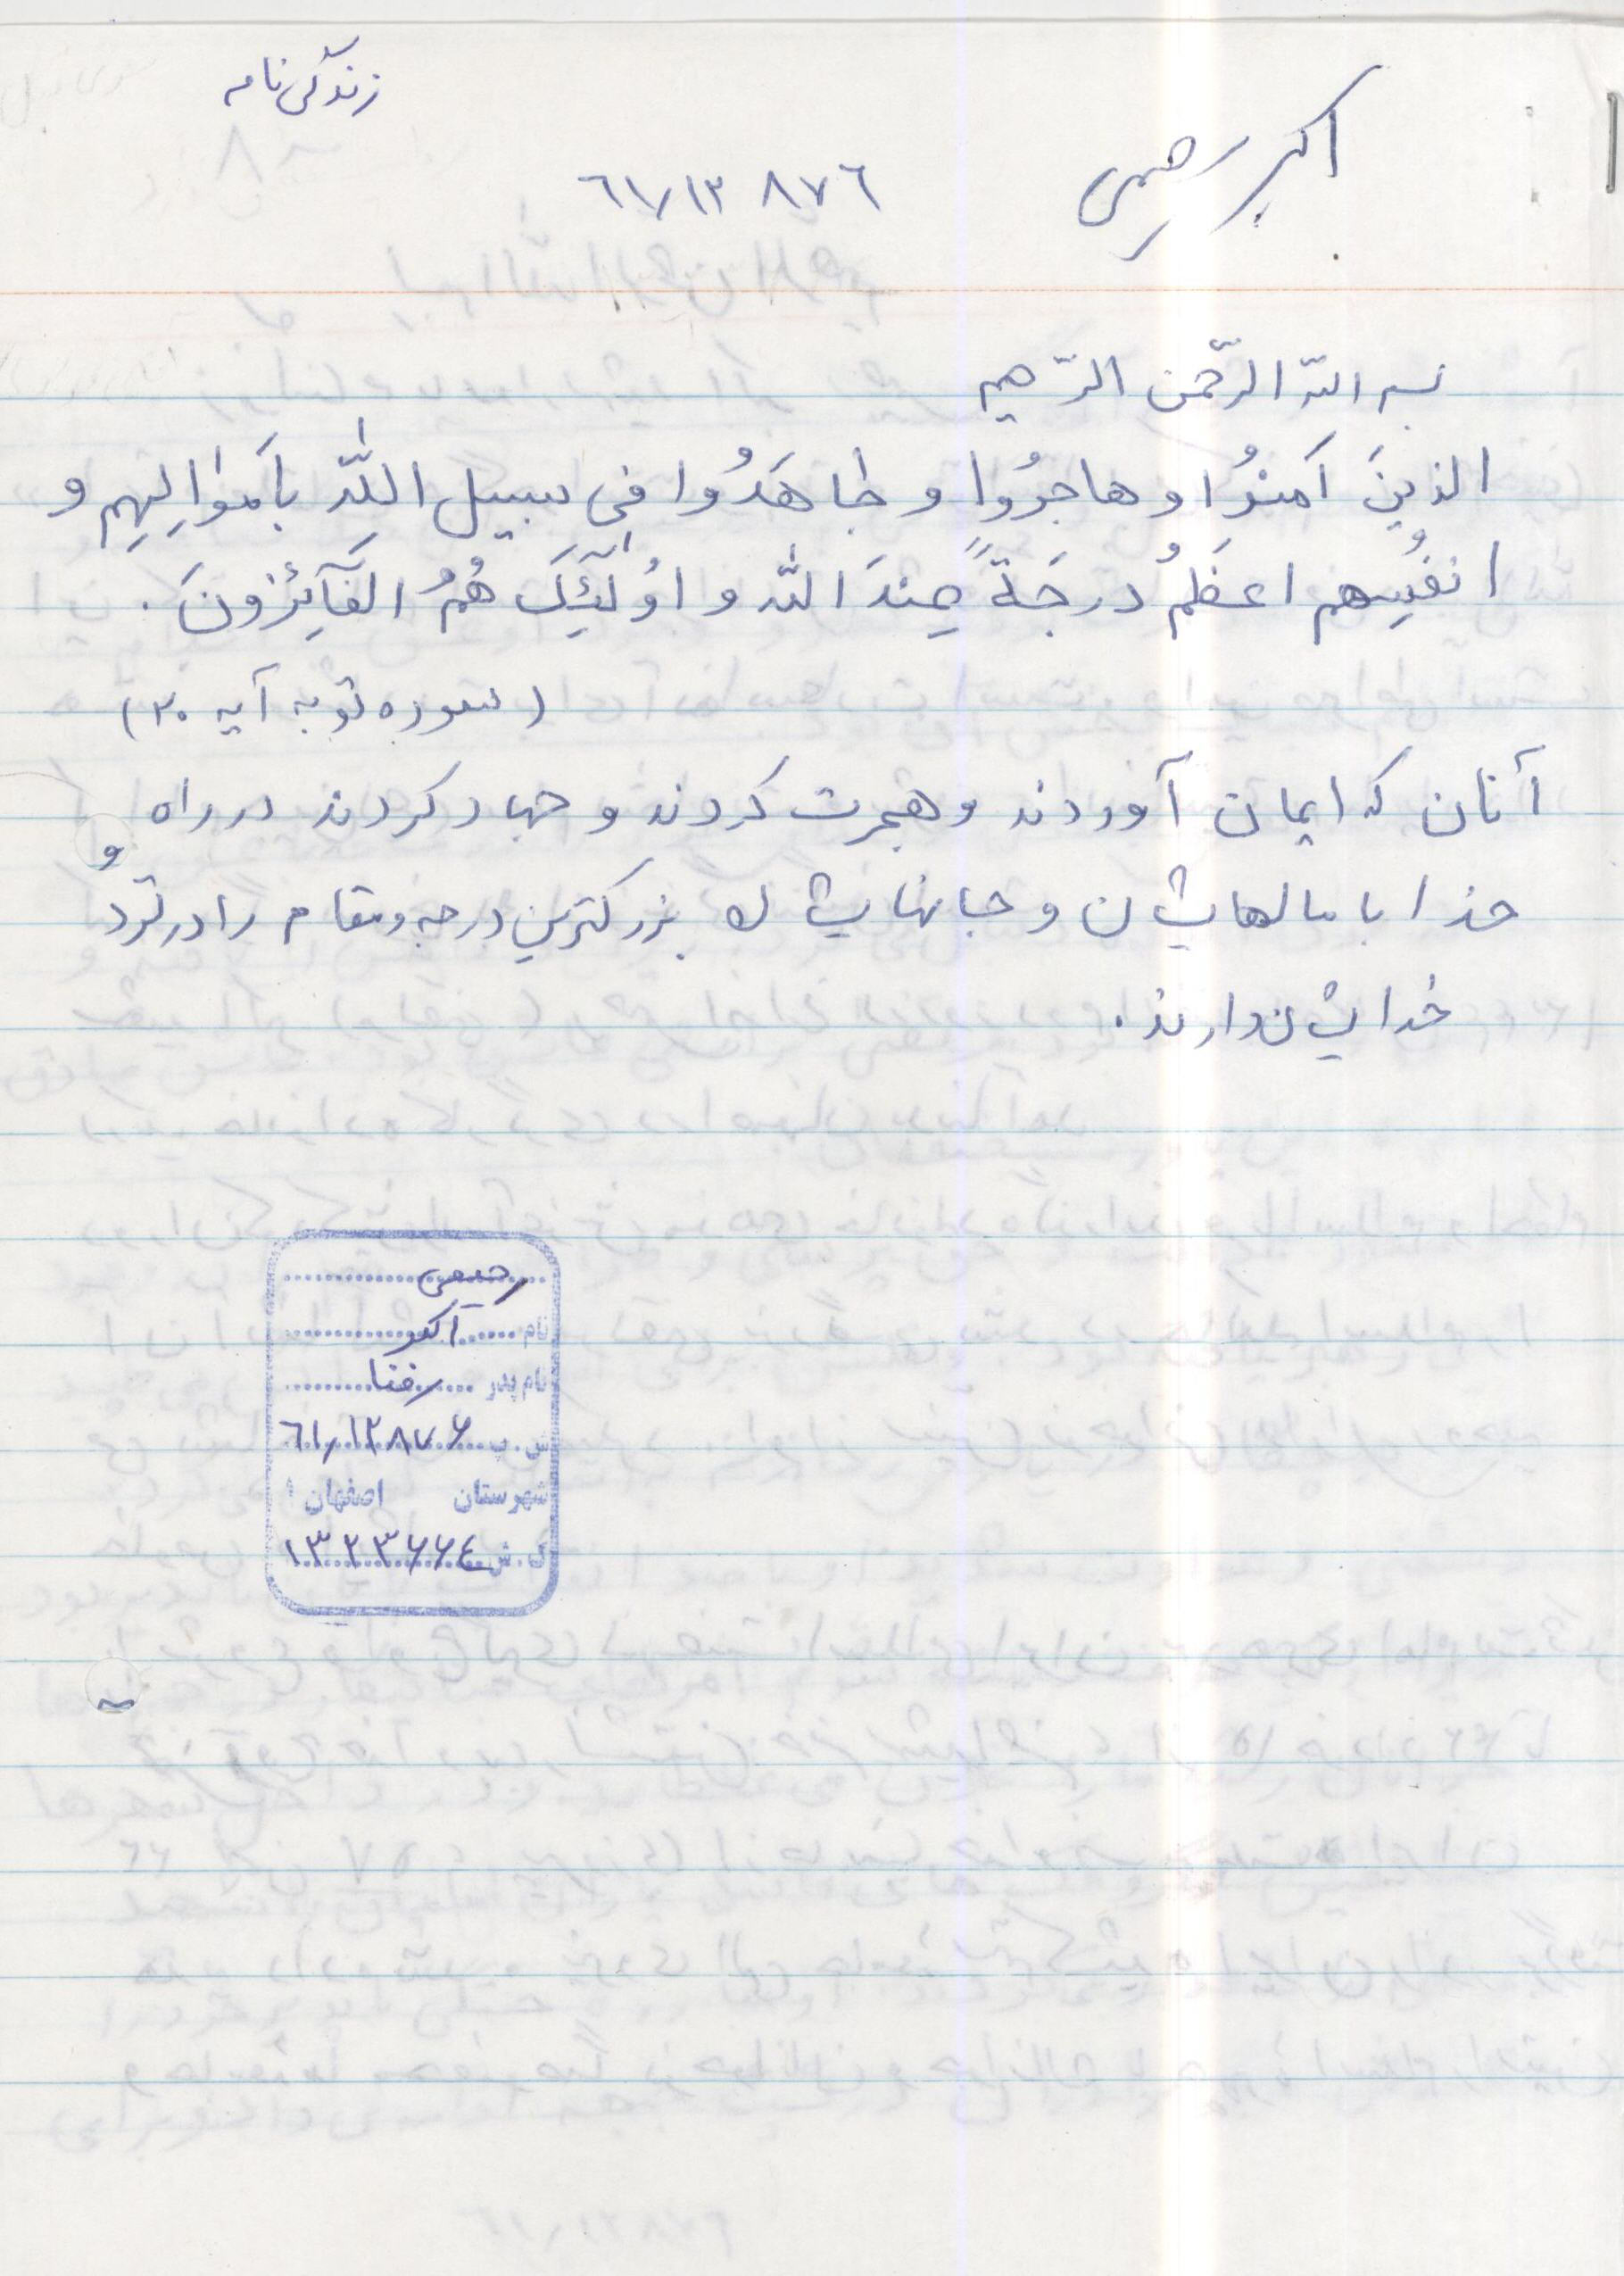 زندگی نامه
اکبر رحیمی
۶۱/۱۳ ۸۷۶
بسم الله الرّحمن الرّحیم
الذینَ آمَنوُا و هاجرُوا و جاهَدُوا فی سبیل اللّٰهِ بِاَموٰالِهِم و
انفُسِهم اعظَمُ درجَةً عِندَ الله و اوُلٓئِکَ هُمُ الفَآئِزونَ.
(سوره توبه آیه ۲۰)
آنان که ایمان آوردند و هجرت کردند و جهاد کردند در راه
خدا با مالهایشان و جانهایشان بزرگترین درجه و مقام را در نزد
خدایشان دارند.
رحیمی
نام اکبر
نام پدر رضا
ش.پ ۶۱/۱۳۸۷۶
شهرستان اصفهان ۱
ک.ش ۱۳۲۳۶۶۴